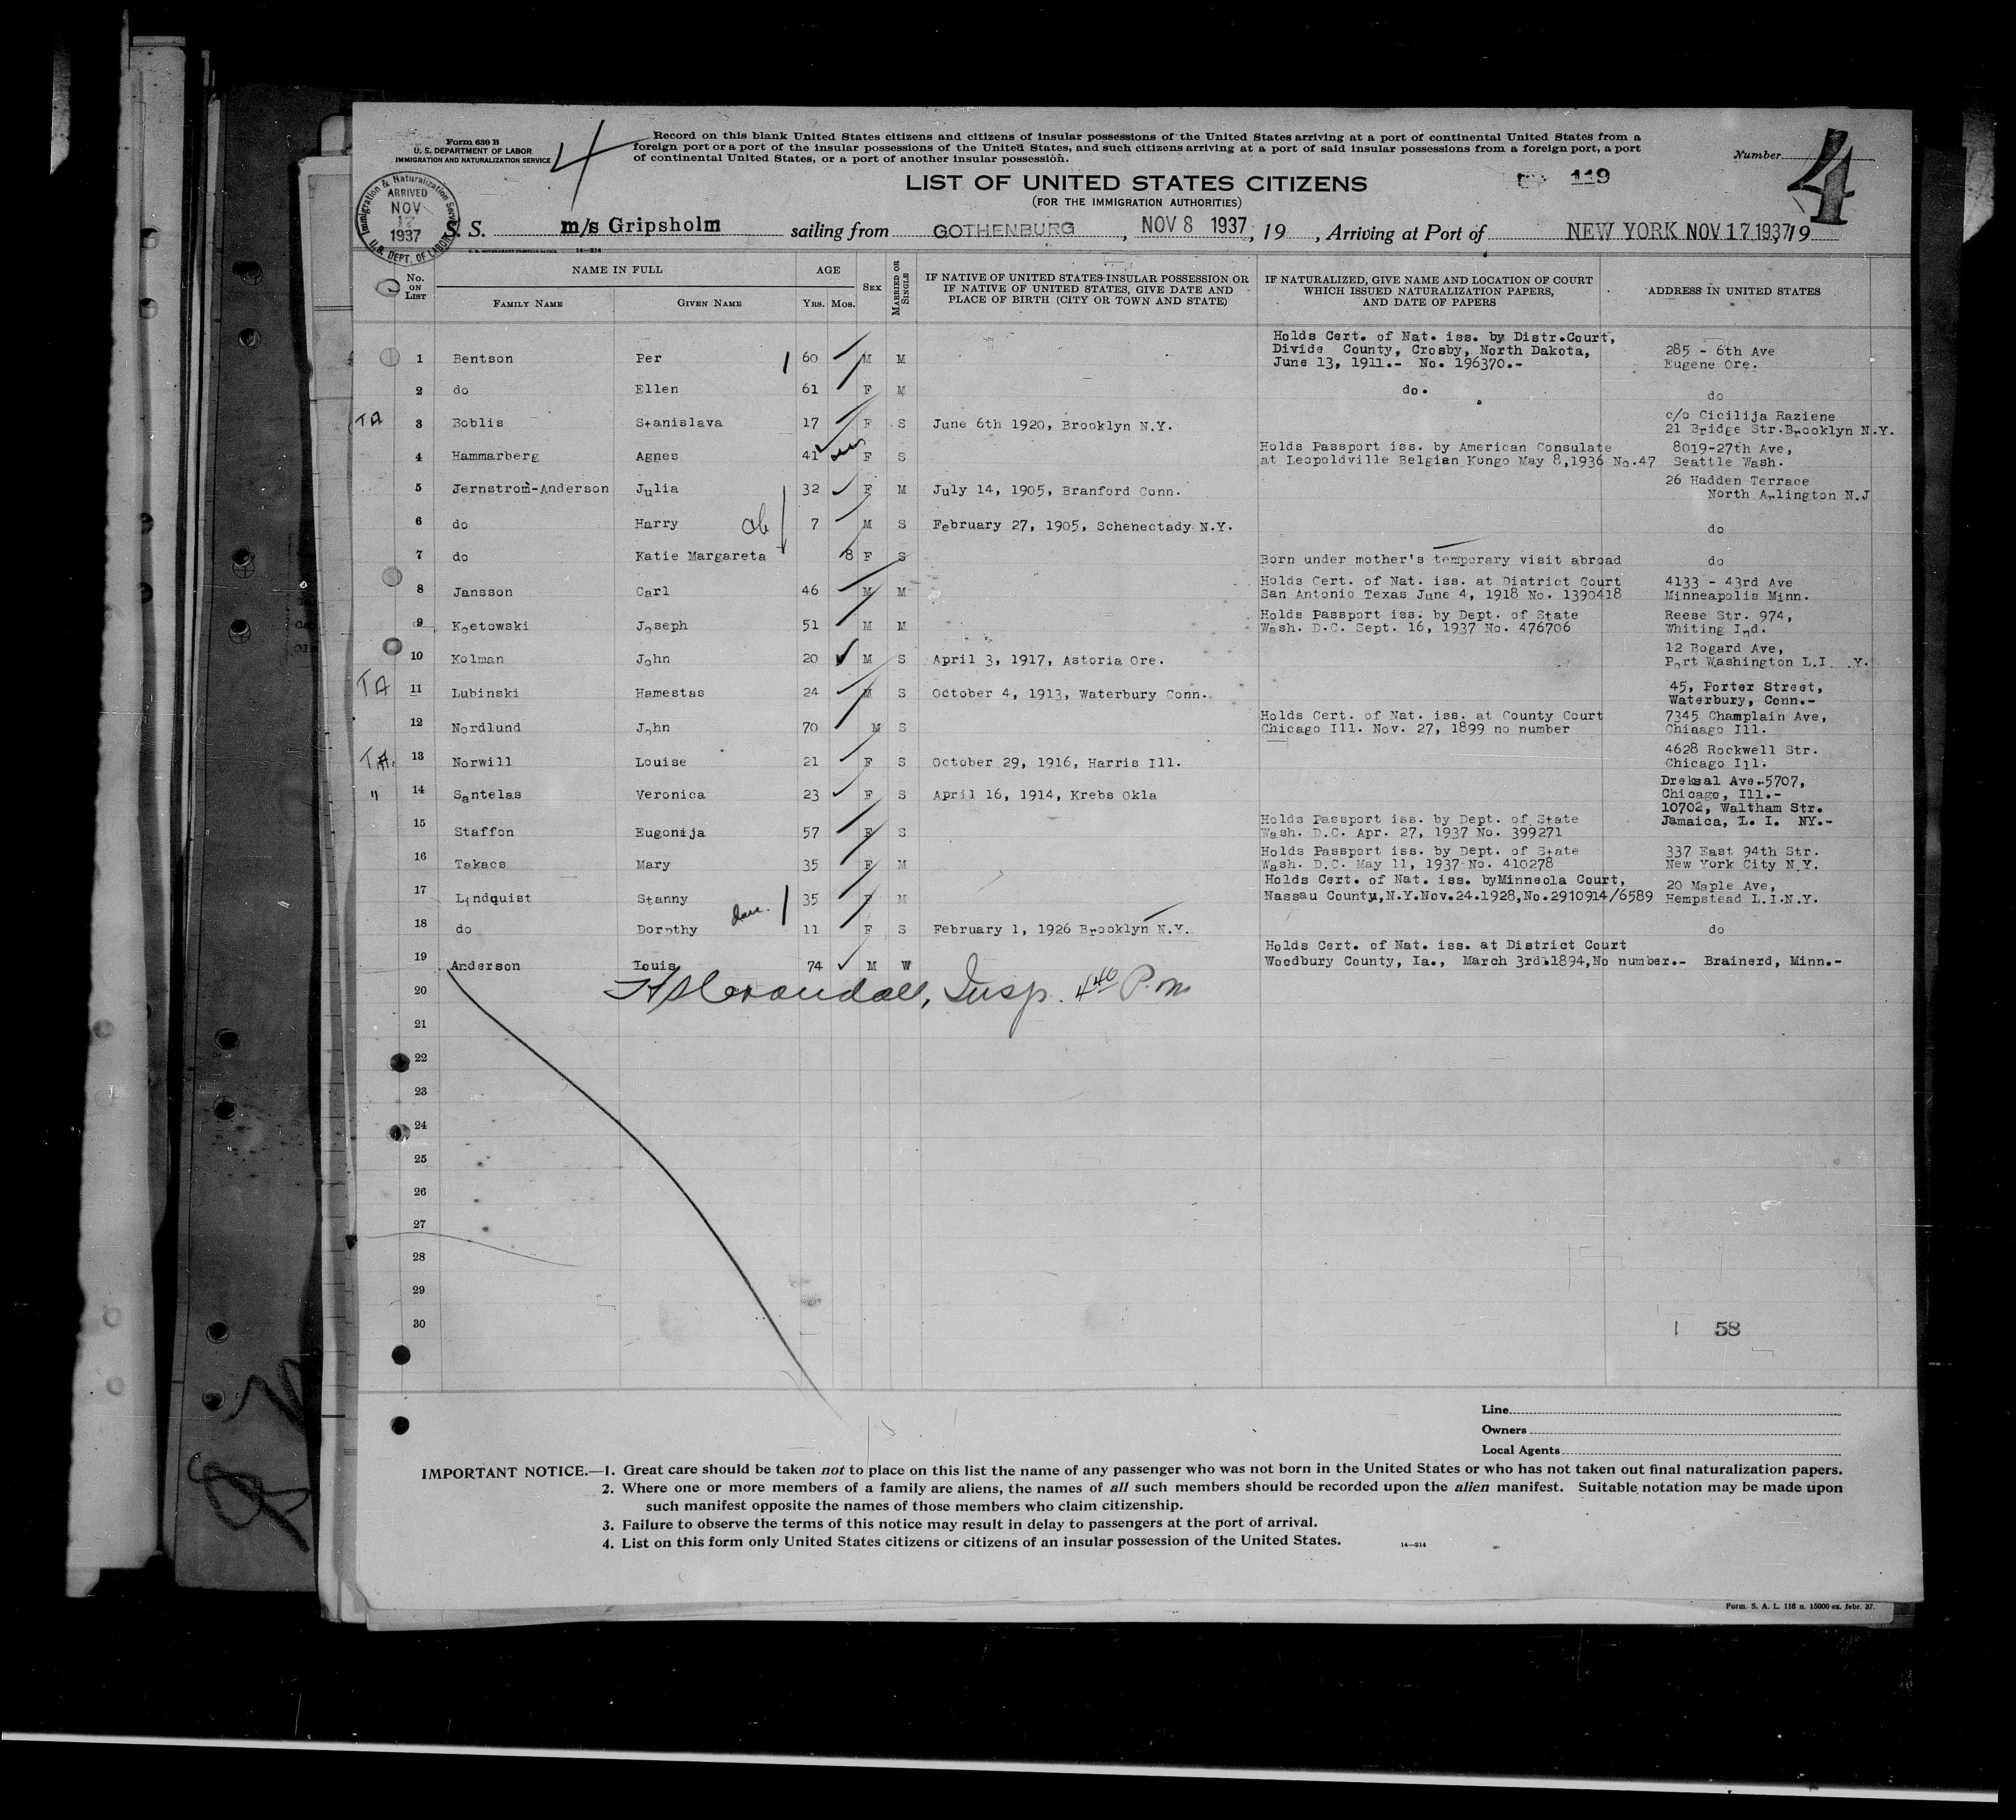 Form 630 B
U. S. DEPARTMENT OF LABOR
IMMIGRATION AND NATURALIZATION SERVICE
4
Record on this blank United States citizens and citizens of insular possessions of the United States arriving at a port of continental United States from a
foreign port or a port of the insular possessions of the United States, and such citizens arriving at a port of said insular possessions from a foreign port, a port
of continental United States, or a port of another insular possession.
Number 4
119
LIST OF UNITED STATES CITIZENS
(FOR THE IMMIGRATION AUTHORITIES)
Immigration & Naturalization Service
ARRIVED
NOV
17
1937
U.S. DEPT. OF LABOR
S. S. m/s Gripsholm sailing from GOTHENBURG, NOV 8 1937, 19 , Arriving at Port of NEW YORK NOV 17 1937, 19
No. ON LIST NAME IN FULL AGE SEX MARRIED OR SINGLE IF NATIVE OF UNITED STATES INSULAR POSSESSION OR IF NATIVE OF UNITED STATES, GIVE DATE AND PLACE OF BIRTH (CITY OR TOWN AND STATE) IF NATURALIZED, GIVE NAME AND LOCATION OF COURT WHICH ISSUED NATURALIZATION PAPERS, AND DATE OF PAPERS ADDRESS IN UNITED STATES
FAMILY NAME GIVEN NAME YRS. MOS.
1 Bentson Per 60 M M Holds Cert. of Nat. iss. by Distr.Court, Divide County, Crosby, North Dakota, June 13, 1911.- No. 196370.- 285 - 6th Ave Eugene Ore.
2 do Ellen 61 F M do. do
TA 3 Boblis Stanislava 17 F S June 6th 1920, Brooklyn N.Y. c/o Cicilija Raziene 21 Bridge Str.Brooklyn N.Y.
4 Hammarberg Agnes 41 F S Holds Passport iss. by American Consulate at Leopoldville Belgian Kongo May 8,1936 No.47 8019-27th Ave, Seattle Wash.
5 Jernstrom-Anderson Julia 32 F M July 14, 1905, Branford Conn. 26 Hadden Terrace North Arlington N.J
6 do Harry 7 M S February 27, 1905, Schenectady N.Y. do
7 do Katie Margareta 8 F S Born under mother's temporary visit abroad do
8 Jansson Carl 46 M M Holds Cert. of Nat. iss. at District Court San Antonio Texas June 4, 1918 No. 1390418 4133 - 43rd Ave Minneapolis Minn.
9 Koetowski Joseph 51 M M Holds Passport iss. by Dept. of State Wash. D.C. Sept. 16, 1937 No. 476706 Reese Str. 974, Whiting Ind.
10 Kolman John 20 M S April 3, 1917, Astoria Ore. 12 Bogard Ave, Port Washington L.I Y.
TA 11 Lubinski Hamestas 24 M S October 4, 1913, Waterbury Conn. 45, Porter Street, Waterbury, Conn.-
12 Nordlund John 70 M S Holds Cert. of Nat. iss. at County Court Chicago Ill. Nov. 27, 1899 no number 7345 Champlain Ave, Chiaago Ill.
T.A. 13 Norwill Louise 21 F S October 29, 1916, Harris Ill. 4628 Rockwell Str. Chicago Ill.
" 14 Santelas Veronica 23 F S April 16, 1914, Krebs Okla Dreksal Ave.5707, Chicago, Ill.-
15 Staffon Eugonija 57 F S Holds Passport iss. by Dept. of State Wash. D.C. Apr. 27, 1937 No. 399271 10702, Waltham Str. Jamaica, L. I. NY.-
16 Takacs Mary 35 F M Holds Passport iss. by Dept. of State Wash. D.C. May 11, 1937 No. 410278 337 East 94th Str. New York City N.Y.
17 Lindquist Stanny 35 F M Holds Cert. of Nat. iss. byMinneola Court, Nassau County,N.Y.Nov.24.1928,No.2910914/6589 20 Maple Ave, Hempstead L.I.N.Y.
18 do Dorothy 11 F S February 1, 1926 Brooklyn N.Y. do
19 Anderson Louis 74 M W Holds Cert. of Nat. iss. at District Court Woodbury County, Ia., March 3rd.1894,No number.- Brainerd, Minn.-
20 Crandall, Insp. 4 40 P.m
21
22
23
24
25
26
27
28
29
30
58
Line
Owners
Local Agents
IMPORTANT NOTICE.—1. Great care should be taken not to place on this list the name of any passenger who was not born in the United States or who has not taken out final naturalization papers.
2. Where one or more members of a family are aliens, the names of all such members should be recorded upon the alien manifest. Suitable notation may be made upon
such manifest opposite the names of those members who claim citizenship.
3. Failure to observe the terms of this notice may result in delay to passengers at the port of arrival.
4. List on this form only United States citizens or citizens of an insular possession of the United States.
14—214
Form. S. A. L. 116 n. 15000 ex. febr. 37.